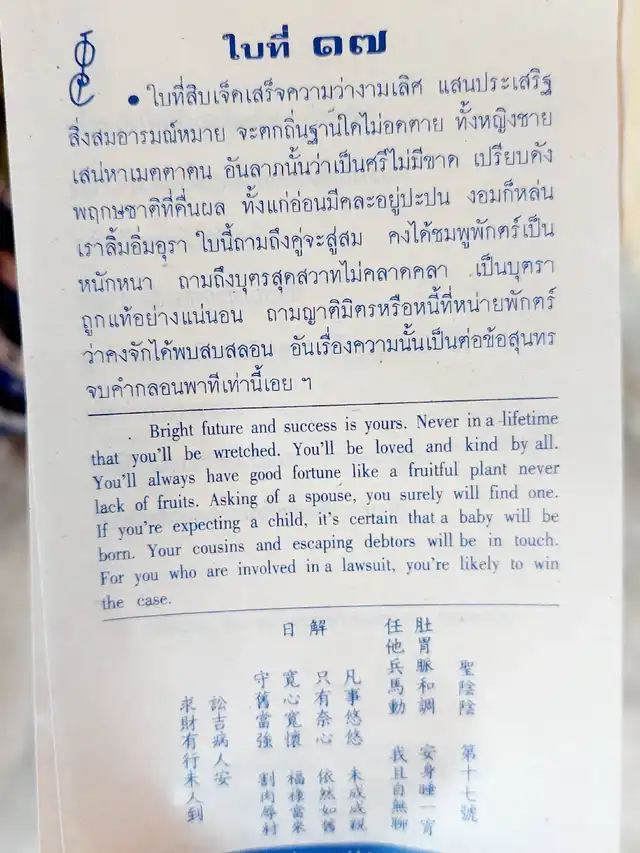 ใบที่ ๑๗
• ใบที่สิบเจ็ดเสร็จความว่างามเลิศ แสนประเสริฐ
สิ่งสมอารมณ์หมาย จะตกถิ่นฐานใดไม่อดตาย ทั้งหญิงชาย
เสน่หาเมตตาตน อันลาภนั้นว่าเป็นศรีไม่มีขาด เปรียบดัง
พฤกษชาติที่คื่นผล ทั้งแก่อ่อนมีคละอยู่ปะปน งอมก็หล่น
เราลิ้มอิ่มอุรา ใบนี้ถามถึงคู่จะสู่สม คงได้ชมพูพักตร์เป็น
หนักหนา ถามถึงบุตรสุดสวาทไม่คลาดคลา เป็นบุตรา
ถูกแท้อย่างแน่นอน ถามญาติมิตรหรือหนี้ที่หน่ายพักตร์
ว่าคงจักได้พบสบสลอน อันเรื่องความนั้นเป็นต่อข้อสุนทร
จบคำกลอนพาทีเท่านี้เอย ฯ
Bright future and success is yours. Never in a lifetime
that you'll be wretched. You'll be loved and kind by all.
You'll always have good fortune like a fruitful plant never
lack of fruits. Asking of a spouse, you surely will find one.
If you're expecting a child, it's certain that a baby will be
born. Your cousins and escaping debtors will be in touch.
For you who are involved in a lawsuit, you're likely to win
the case.
聖陰陰 第十七號
肚胃脈和調 安身睡一宵
任他兵馬動 我且自無聊
解日
凡事悠悠 未成咸親
只有奈心 依然如舊
寬心寬懷 福祿當來
守舊當強 割肉
訟吉病人安
求財有行未人到